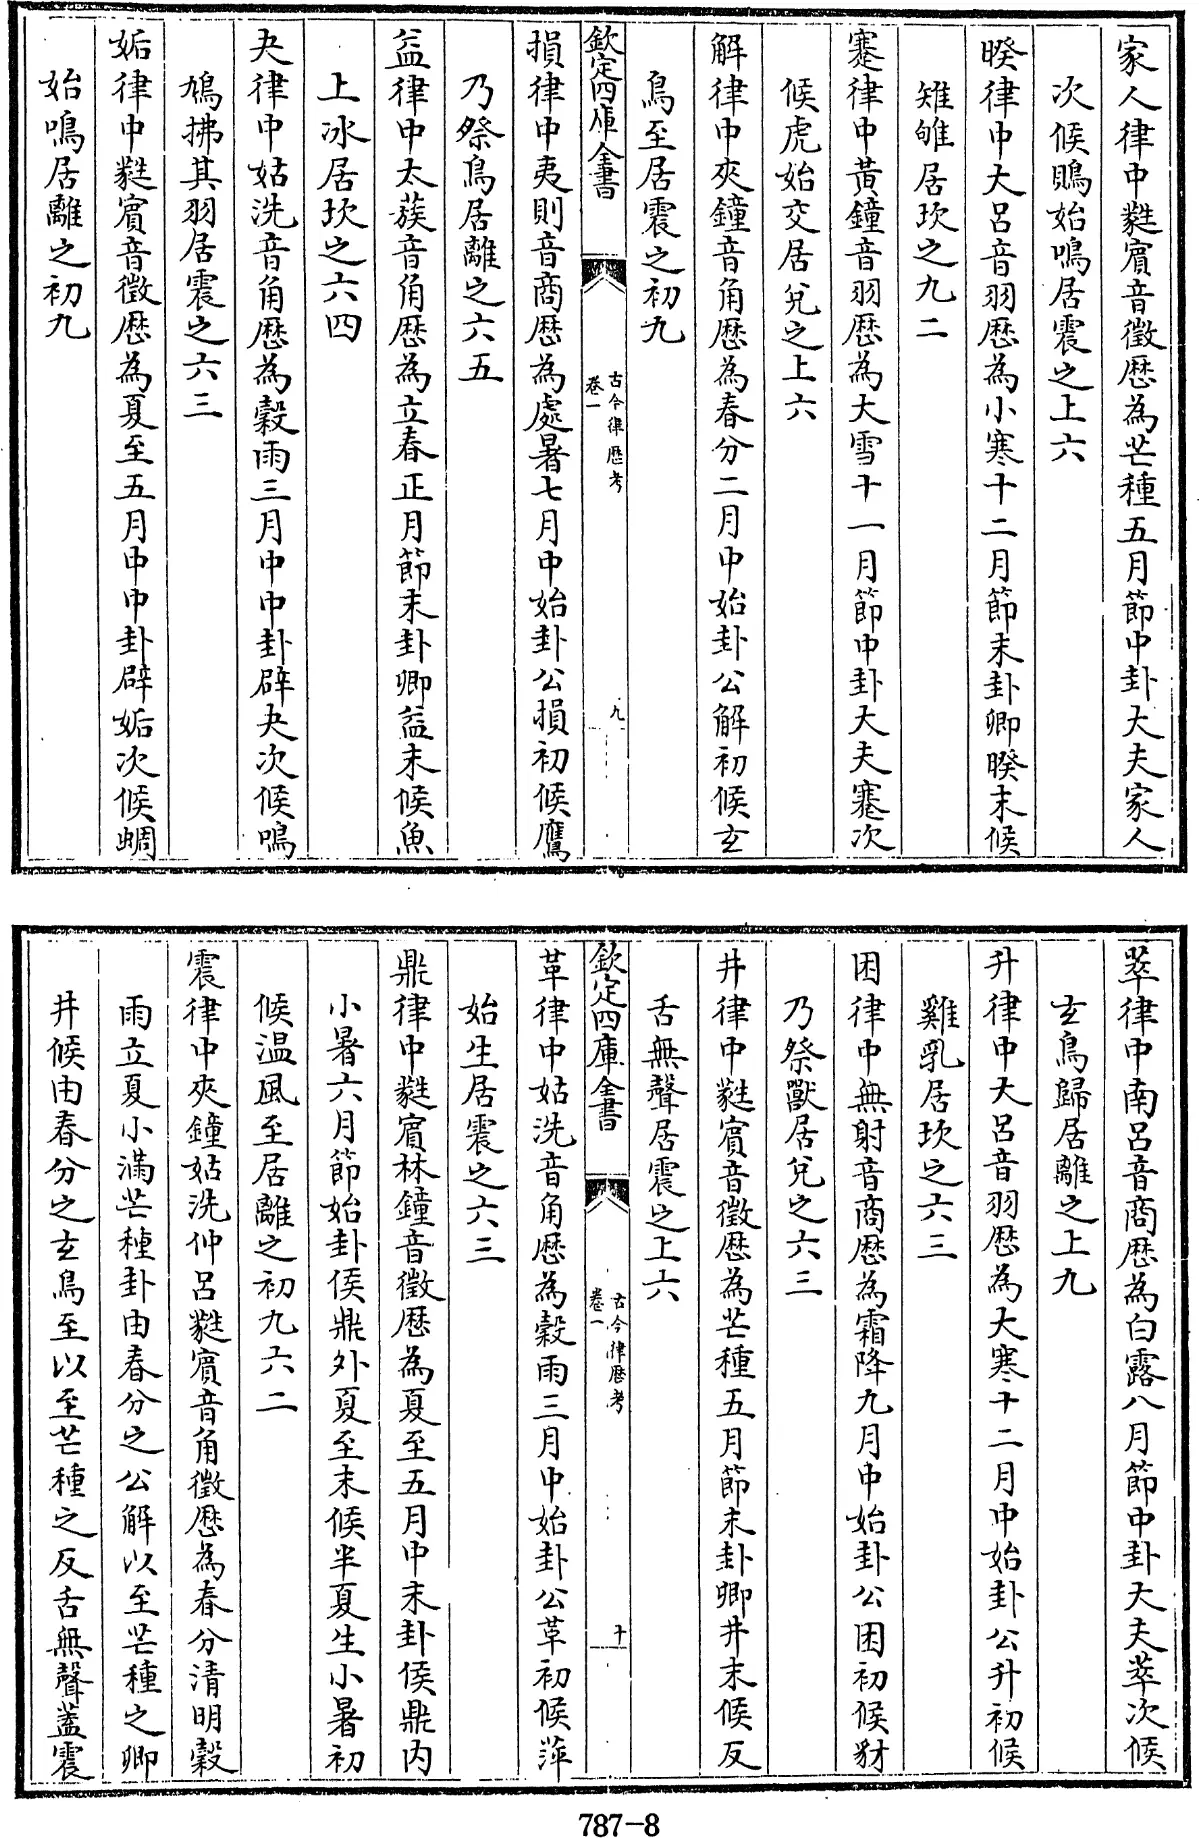 家人律中蕤賓音徵歴為芒種五月節中卦大夫家人
次候鵙始鳴居震之上六
睽律中大呂音羽歴為小寒十二月節末卦卿睽末候
雉雊居坎之九二
蹇律中黃鐘音羽歴為大雪十一月節中卦大夫蹇次
候虎始交居兌之上六
解律中夾鐘音角歴為春分二月中始卦公解初候玄
鳥至居震之初九
欽定四庫全書
古今律歴考
卷一
九
損律中夷則音商歴為處暑七月中始卦公損初候鷹
乃祭鳥居離之六五
益律中太蔟音角歴為立春正月節末卦卿益末候魚
上冰居坎之六四
夬律中姑洗音角歴為穀雨三月中中卦辟夬次候鳴
鳩拂其羽居震之六三
姤律中蕤賓音徵歴為夏至五月中中卦辟姤次候蜩
始鳴居離之初九
萃律中南呂音商歴為白露八月節中卦大夫萃次候
玄鳥歸居離之上九
升律中大呂音羽歴為大寒十二月中始卦公升初候
雞乳居坎之六三
困律中無射音商歴為霜降九月中始卦公困初候豺
乃祭獸居兌之六三
井律中蕤賓音徵歴為芒種五月節末卦卿井末候反
舌無聲居震之上六
欽定四庫全書
古今律歴考
卷一
十
革律中姑洗音角歴為穀雨三月中始卦公革初候萍
始生居震之六三
鼎律中蕤賓林鐘音徵歴為夏至五月中末卦侯鼎内
小暑六月節始卦侯鼎外夏至末候半夏生小暑初
候温風至居離之初九六二
震律中夾鐘姑洗仲呂蕤賓音角徵歴為春分清明穀
雨立夏小滿芒種卦由春分之公解以至芒種之卿
井候由春分之玄鳥至以至芒種之反舌無聲蓋震
787-8